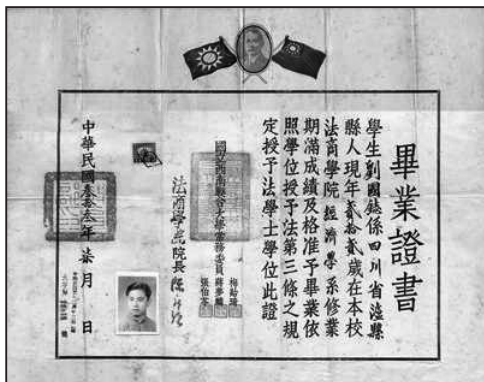 畢業證書
學生劉國鋕係四川省瀘縣
縣人現年貳拾貳歲在本校
法商學院經濟學系修業
期滿成績及格准予畢業依
照學位授予法第三條之規
定授予法學士學位此證
國立西南聯合大學常務委員
梅貽琦
蔣夢麟
張伯苓
法商學院院長
中華民國叁拾叁年柒月 日